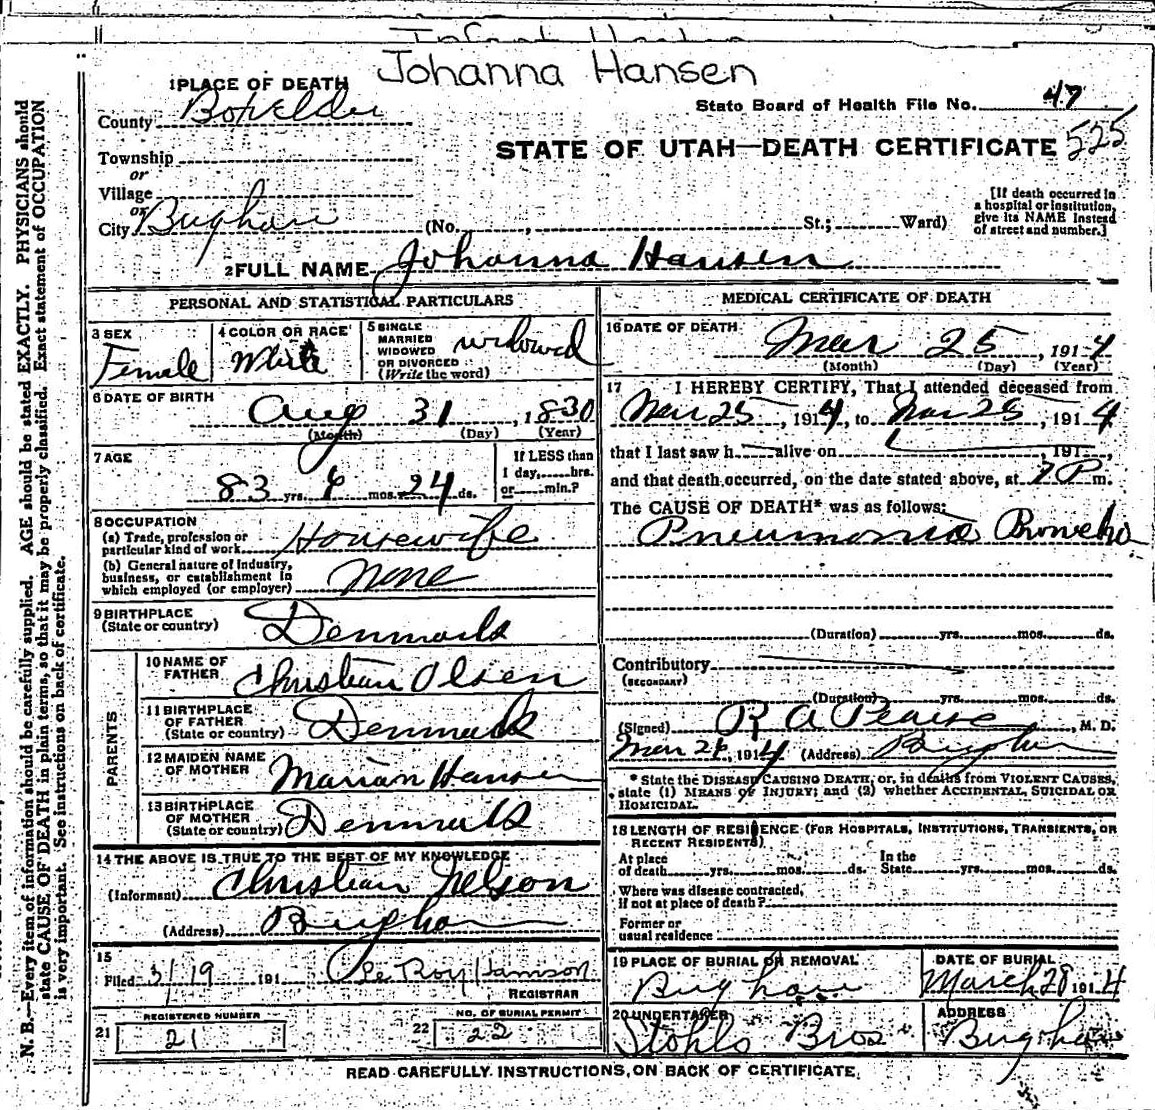 Johanna Hansen
1 PLACE OF DEATH
County Box Elder
State Board of Health File No. 47
525
STATE OF UTAH—DEATH CERTIFICATE
Township
or
Village
or
City Brigham (No. , St.; Ward)
[If death occurred in
a hospital or institution,
give its NAME instead
of street and number.]
2 FULL NAME Johanna Hansen
PERSONAL AND STATISTICAL PARTICULARS
3 SEX
Female
4 COLOR OR RACE
White
5 SINGLE
MARRIED
WIDOWED
OR DIVORCED
(Write the word)
widowed
6 DATE OF BIRTH
Aug 31, 1830
(Month) (Day) (Year)
7 AGE
83 yrs. 6 mos. 24 ds.
If LESS than
1 day, hrs.
or min.?
8 OCCUPATION
(a) Trade, profession or
particular kind of work Housewife
(b) General nature of industry,
business, or establishment in
which employed (or employer) None
9 BIRTHPLACE
(State or country) Denmark
PARENTS
10 NAME OF
FATHER Christian Olsen
11 BIRTHPLACE
OF FATHER
(State or country) Denmark
12 MAIDEN NAME
OF MOTHER Marian Hansen
13 BIRTHPLACE
OF MOTHER
(State or country) Denmark
14 THE ABOVE IS TRUE TO THE BEST OF MY KNOWLEDGE
(Informant) Christian Nelson
(Address) Brigham
15
Filed 3/19 191
REGISTRAR
REGISTERED NUMBER
21 21
NO. OF BURIAL PERMIT
22 22
MEDICAL CERTIFICATE OF DEATH
16 DATE OF DEATH
Mar 25, 1914
(Month) (Day) (Year)
17 I HEREBY CERTIFY, That I attended deceased from
Mar 25, 1914, to Mar 25, 1914
that I last saw h alive on , 191 ,
and that death occurred, on the date stated above, at 7 P m.
The CAUSE OF DEATH* was as follows:
Pneumonia Broncho
(Duration) yrs. mos. ds.
Contributory
(SECONDARY)
(Duration) yrs. mos. ds.
(Signed) R A Pearse, M. D.
Mar 26, 1914 (Address) Brigham
* State the DISEASE CAUSING DEATH, or, in deaths from VIOLENT CAUSES,
state (1) MEANS OF INJURY; and (2) whether ACCIDENTAL, SUICIDAL OR
HOMICIDAL.
18 LENGTH OF RESIDENCE (FOR HOSPITALS, INSTITUTIONS, TRANSIENTS, OR
RECENT RESIDENTS)
At place
of death yrs. mos. ds.
In the
State yrs. mos. ds.
Where was disease contracted,
if not at place of death?
Former or
usual residence
19 PLACE OF BURIAL OR REMOVAL
Brigham
DATE OF BURIAL
March 28 1914
20 UNDERTAKER
Stohls Bros
ADDRESS
Brigham
READ CAREFULLY INSTRUCTIONS ON BACK OF CERTIFICATE
N. B.—Every item of information should be carefully supplied. AGE should be stated EXACTLY. PHYSICIANS should
state CAUSE OF DEATH in plain terms, so that it may be properly classified. Exact statement of OCCUPATION
is very important. See instructions on back of certificate.